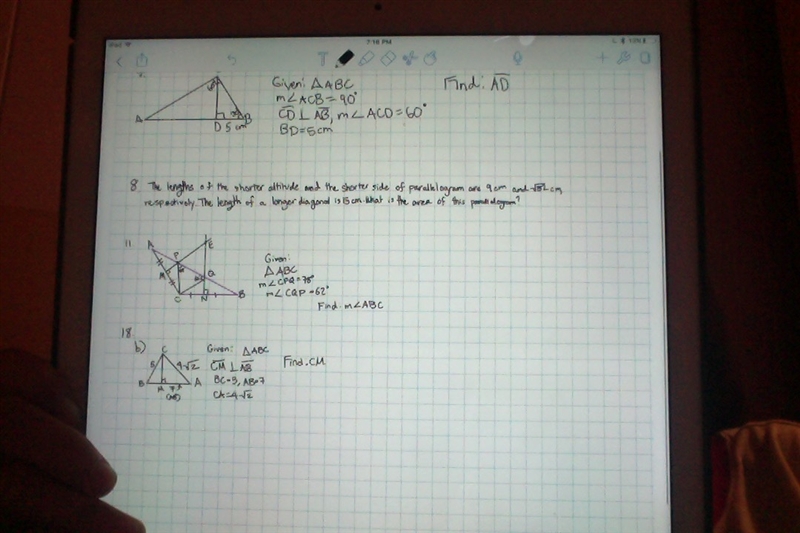 iPad
7:16 PM
13%
T
C
Given: △ABC
Find: AD
m∠ACB=90°
CD ⊥ AB, m∠ACD=60°
BD=5cm
A
B
D 5 cm
8. The lengths of the shorter altitude and the shorter side of parallelogram are 9cm and √82 cm,
respectively. The length of a longer diagonal is 15cm. What is the area of this parallelogram?
11
A
E
P
Given:
△ABC
M
Q
m∠CPQ=78°
m∠CQP=62°
C
N
B
Find: m∠ABC
18.
b)
C
Given: △ABC
Find: CM
5
4√2
CM ⊥ AB
B
M
7
A
BC=5, AB=7
(AB)
CA=4√2